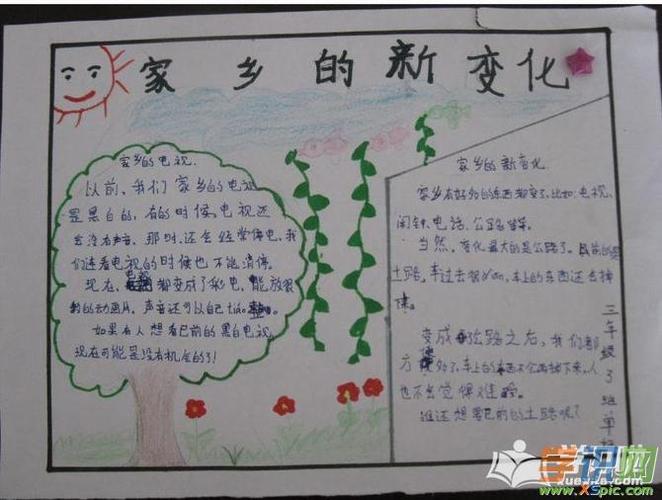 家乡的新变化
家乡的电视
以前,我们家乡的电视
是黑白的,有的时候,电视还
会没有声音,那时,还会经常停电,我
们连看电视的时候也不能消停。
现在,电视都变成了彩电,能放很
的动画片,声音还可以自己tiáo
如果有人想看已前的黑白电视,
现在可能是没有机会的了!
家乡的新变化
家乡有好多的东西都变了,比如,电视,
闹钟,电话,公路等等。
当然,变化最大的是公路了。
土路,车过去很 车上的东西还会掉
变成 公路之后,我们都
方便多了,车上的东西不会再掉下来,人
也不会觉得难
谁还想要已前的土路呢?
三年级3班单
学识网
www.xspic.com